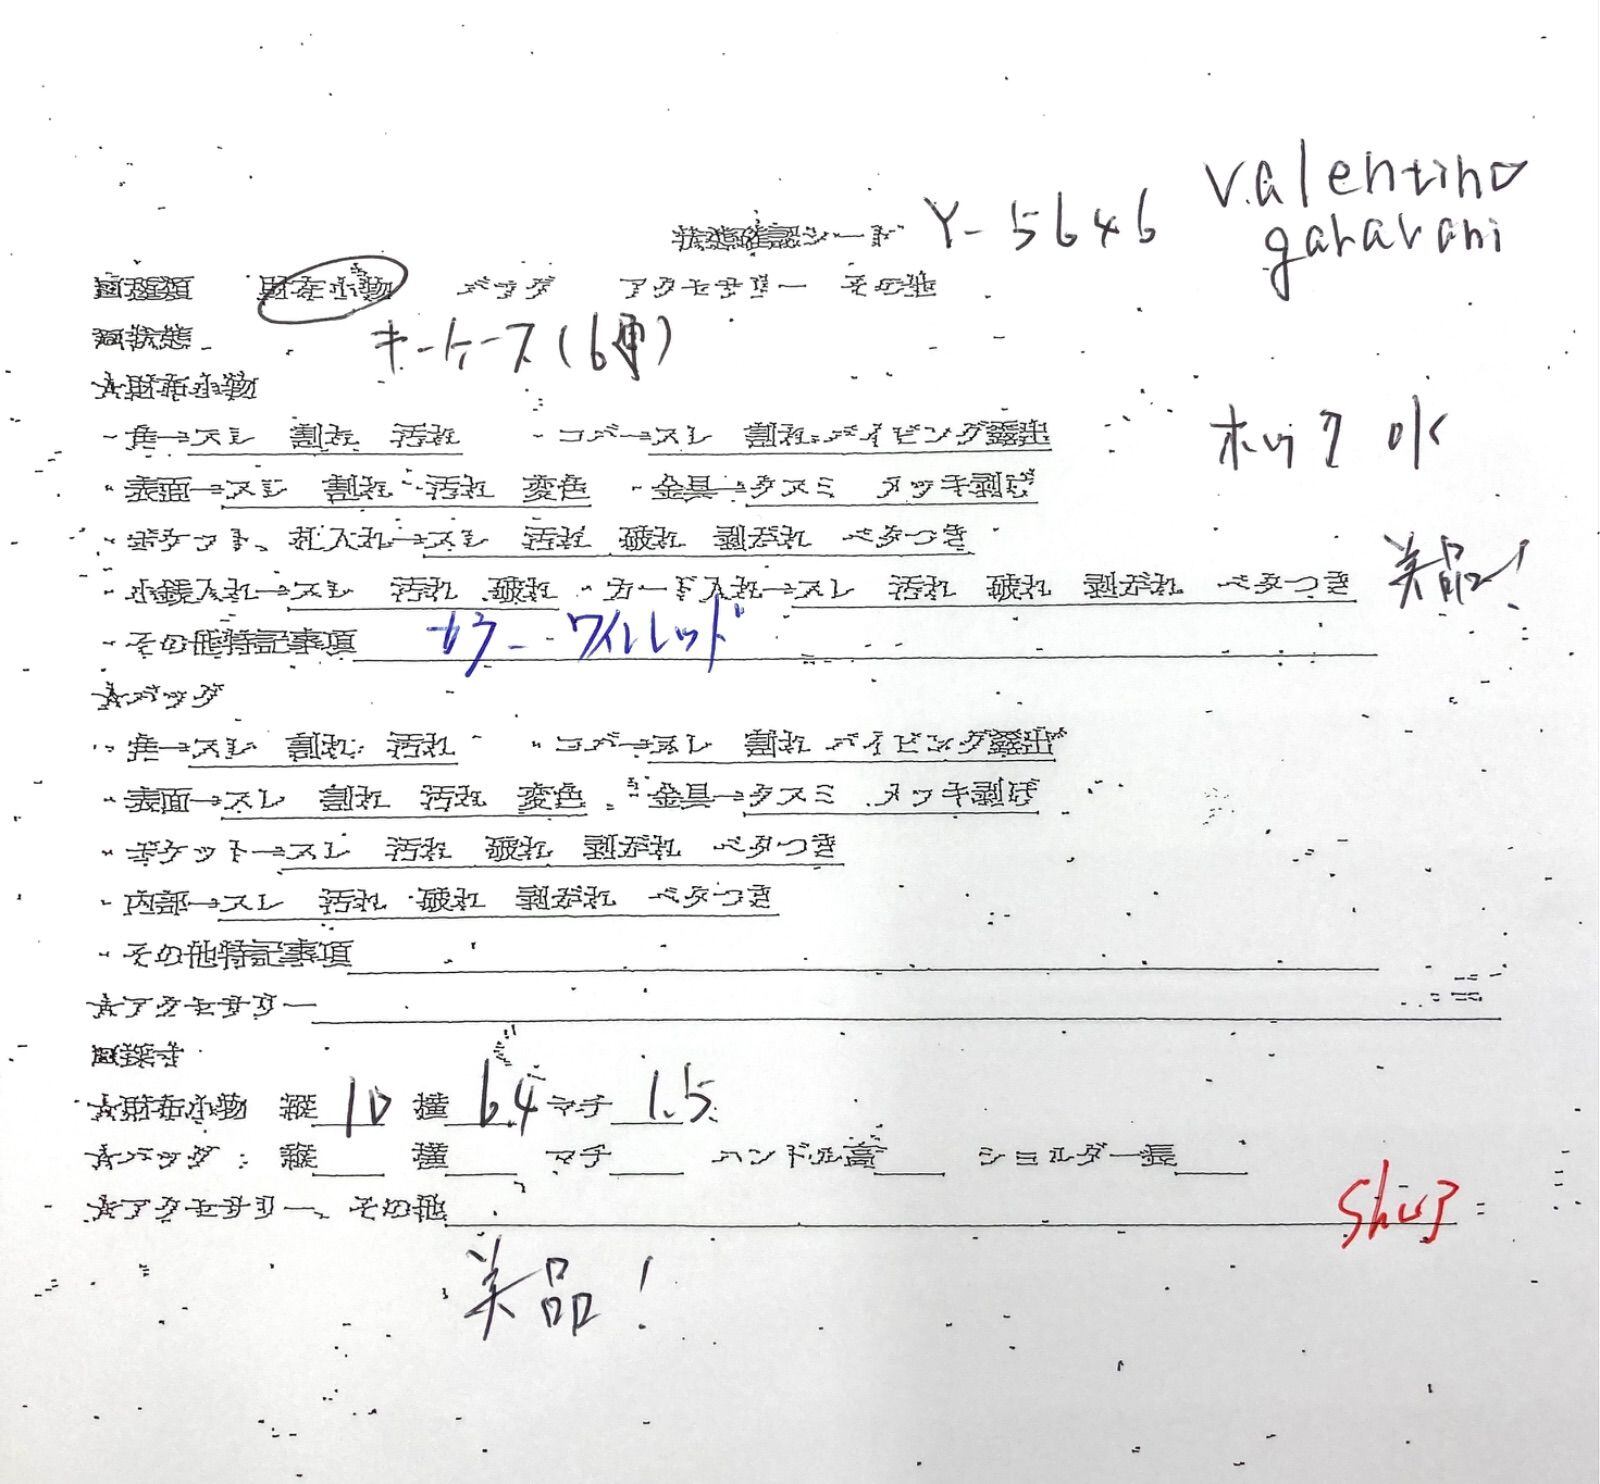 Valentino
garavani
状態確認シート Y-5646
■種類 財布小物 バッグ アクセサリー その他
■状態 キーケース(6連)
★財布小物
・角→スレ 割れ 汚れ ・コバ→スレ 割れ パイピング露出
ホック OK
・表面→スレ 割れ 汚れ 変色 ・金具→クスミ メッキ剥げ
・ポケット、札入れ→スレ 汚れ 破れ 剥がれ ベタつき
・小銭入れ→スレ 汚れ 破れ ・カード入れ→スレ 汚れ 破れ 剥がれ ベタつき 美品!
・その他特記事項 カラー ワインレッド
★バッグ
・角→スレ 割れ 汚れ ・コバ→スレ 割れ パイピング露出
・表面→スレ 割れ 汚れ 変色 ・金具→クスミ メッキ剥げ
・ポケット→スレ 汚れ 破れ 剥がれ ベタつき
・内部→スレ 汚れ 破れ 剥がれ ベタつき
・その他特記事項
★アクセサリー
■採寸
★財布小物 縦 10 横 6.4 マチ 1.5
★バッグ 縦 横 マチ ハンドル高 ショルダー長
★アクセサリー、その他
美品!